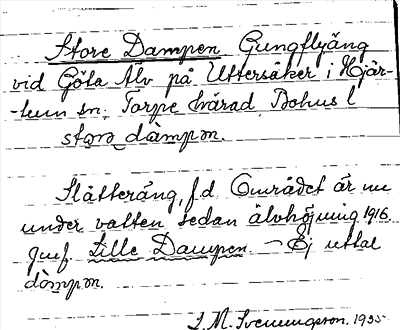 Store Dampen Gungflyäng
vid Göta Älv på Uttersäker i Hjär-
-tum sn, Torpe härad, Bohus l
stọrə dàmpən.
Slåtteräng, f.d. Området är nu
under vatten sedan älvhöjning 1916
Jmf. Lille Dampen. — Ej uttal
dàmpən.
J. M. Svenningson, 1935